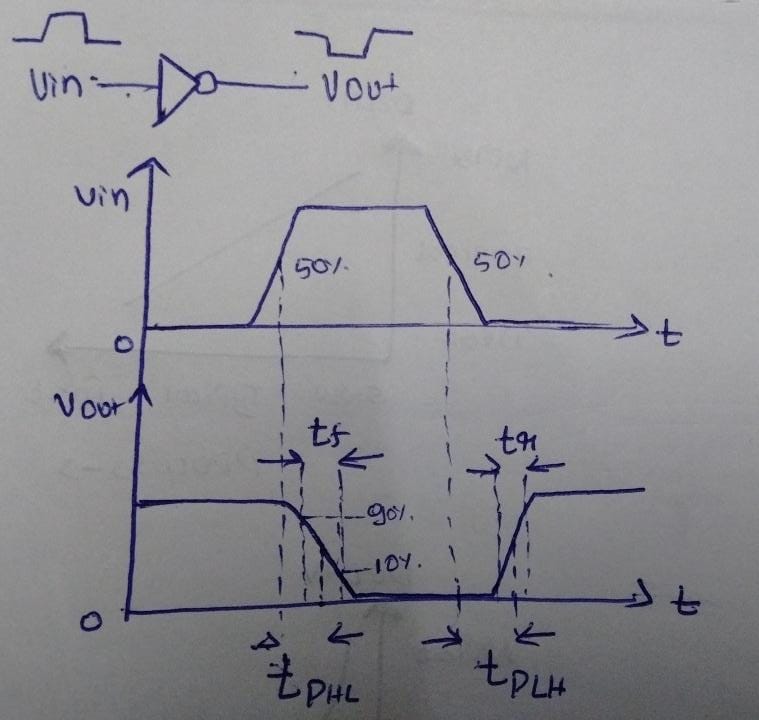 Vin Vout
Vin
50%. 50%.
0 t
Vout
tf tr
90%.
10%.
0 t
tPHL tPLH